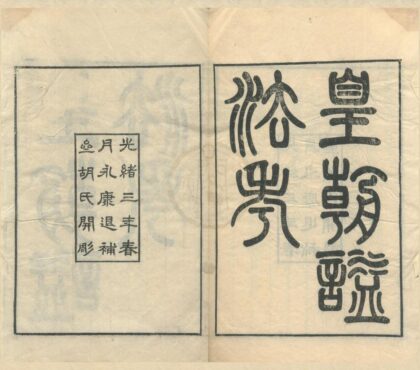 皇朝謚
法考
光緒三年春
月永康退補
亝胡氏開彫